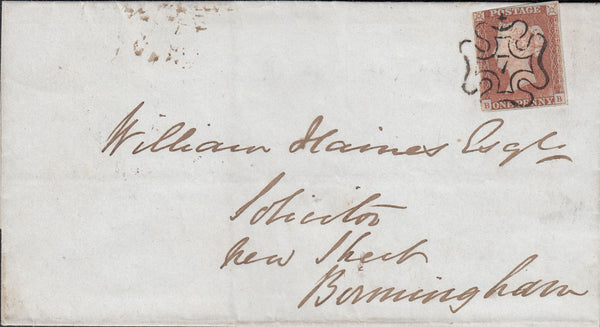 POSTAGE
B ONE PENNY B
William Haines Esqre
Solicitor
New Street
Birmingham